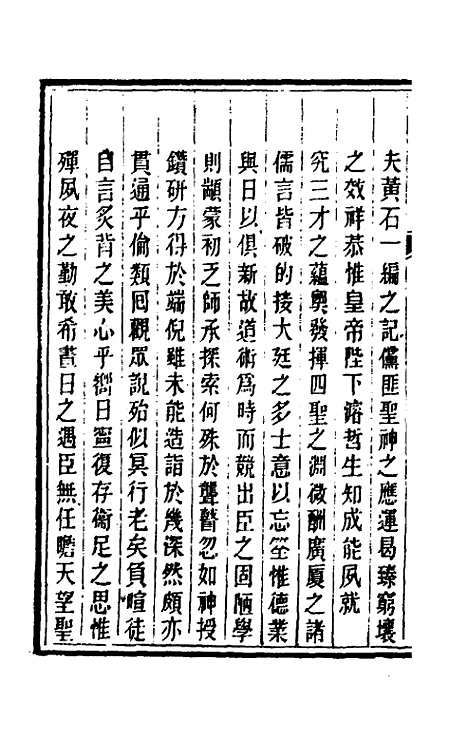 夫黃石一編之記儻匪聖神之應運曷臻窮壤
之效祥恭惟皇帝陛下濬哲生知成能夙就
究三才之蘊奧發揮四聖之淵微酬廣厦之諸
儒言皆破的接大廷之多士意以忘筌惟德業
與日以俱新故道術爲時而競出臣之固陋學
則顓蒙初乏師承探索何殊於聾瞽忽如神授
鑽研方得於端倪雖未能造詣於幾深然頗亦
貫通乎倫類囘觀眾說殆似冥行老矣負暄徒
自言炙背之美心乎嚮日寧復存衞足之思惟
殫夙夜之勤敢希晝日之遇臣無任瞻天望聖